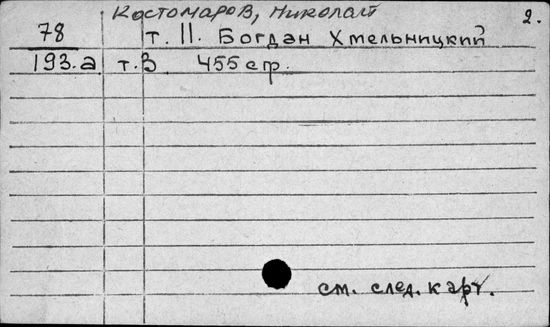 Костомаров, Николай 2.
78 т. II. Богдан Хмельницкий
193.а т.3 455 стр.
см. след. карт.